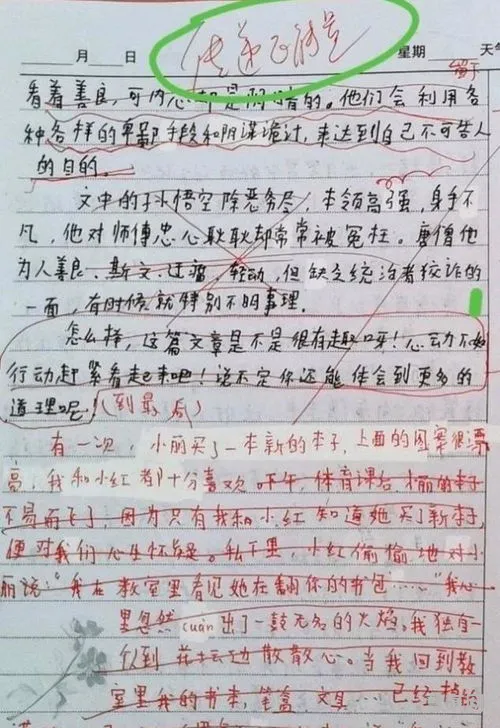 传递正能量
月 日 星期 天气
留下
看着善良，可内心却是阴暗的。他们会利用各
种各样的卑鄙手段和阴谋诡计，来达到自己不可告人
的目的。
文中的孙悟空除恶务尽，本领高强，身手不
凡，他对师傅忠心耿耿却常常被冤枉。唐僧他
为人善良、斯文、但缺乏统治者狡诈的
一面，有时候就特别不明事理。
怎么样，这篇文章是不是很有趣呀！心动不如
行动赶紧看起来吧！说不定你还能体会到更多的
道理呢！（到最后）
有一次，小丽买了一本新的本子，上面的图案很漂
亮，我和小红都十分喜欢。下午，体育课后，小丽的本子
不易而飞了，因为只有我和小红知道她买了新本子
便对我们心生怀疑。私下里，小红偷偷地对小
丽说：“我在教室里看见她在翻你的书包……”我心
里忽然cuàn出了一鼓无名的火焰。我独自一
人到花坛边散散心。当我回到教
室里我的书本，笔盒，文具……已经